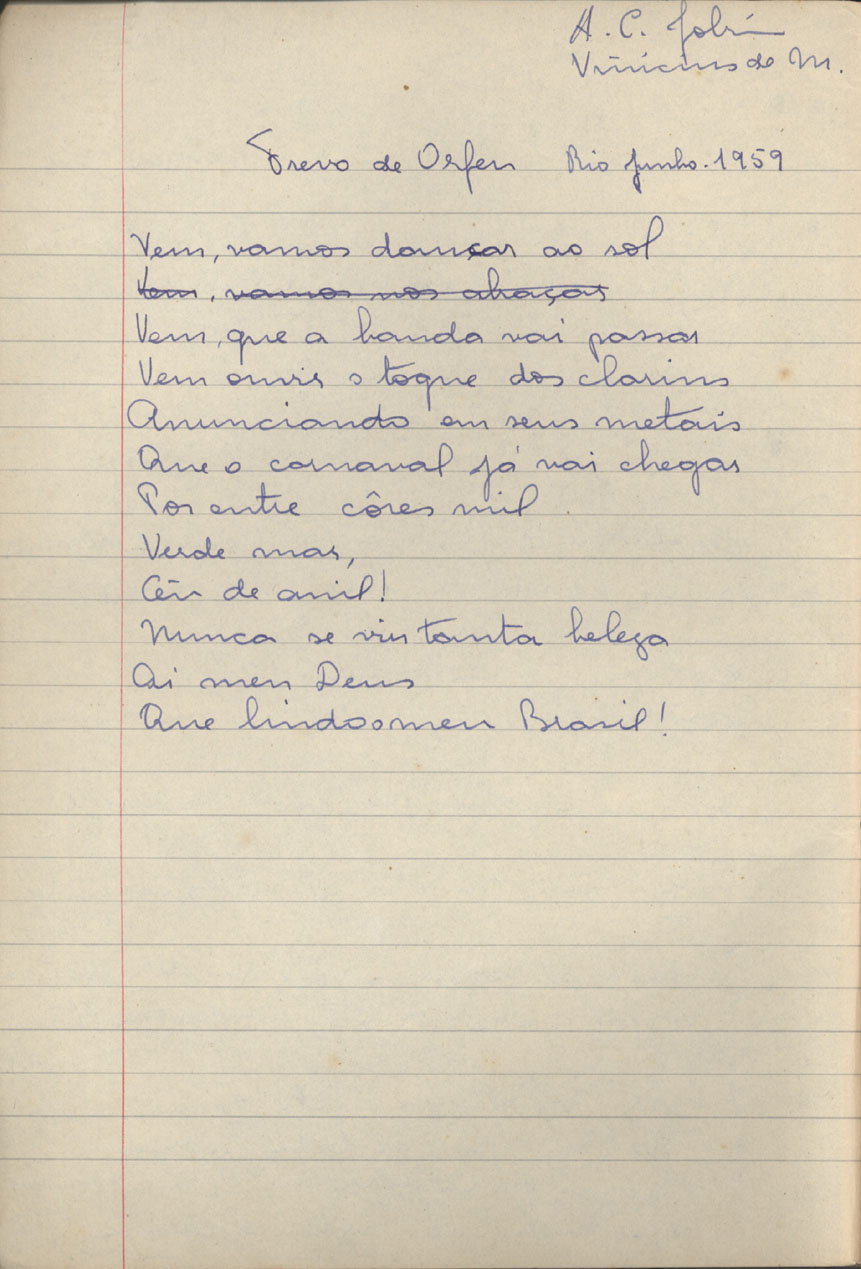 A. C. Jobim
Vinicius de M.
Frevo de Orfeu Rio Junho. 1959
Vem, vamos dançar ao sol
Vem, vamos nos abraçar
Vem, que a banda vai passar
Vem ouvir o toque dos clarins
Anunciando em seus metais
Que o carnaval já vai chegar
Por entre côres mil
Verde mar,
Céu de anil!
Nunca se viu tanta beleza
Ai meu Deus
Que lindo o meu Brasil!